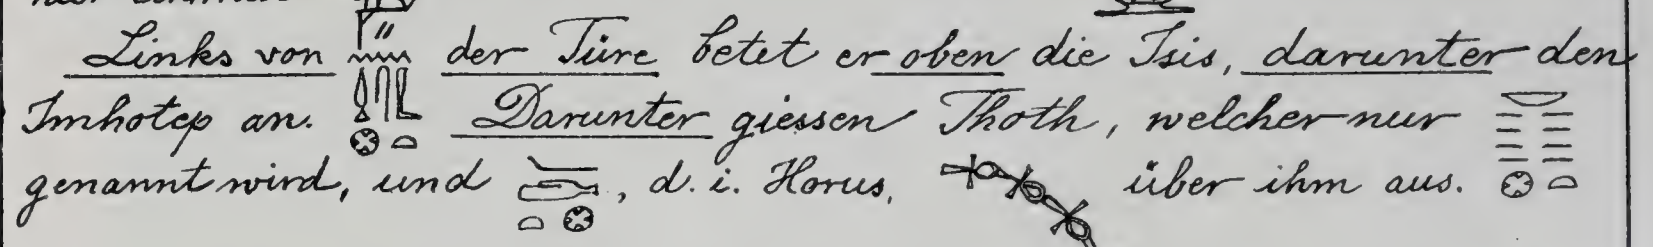 Links von der Türe betet er oben die Isis, darunter den
Imhotep an. Darunter giessen Thoth, welcher nur
genannt wird, und , d. i. Horus, über ihm aus.